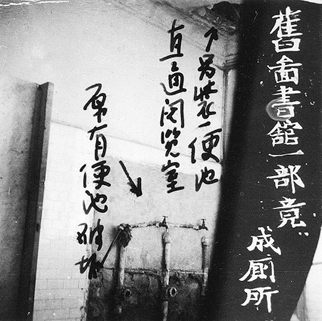 舊圖書館一部竟
成厠所
↑另裝一便池
直通閱覽室
原有便池破壞